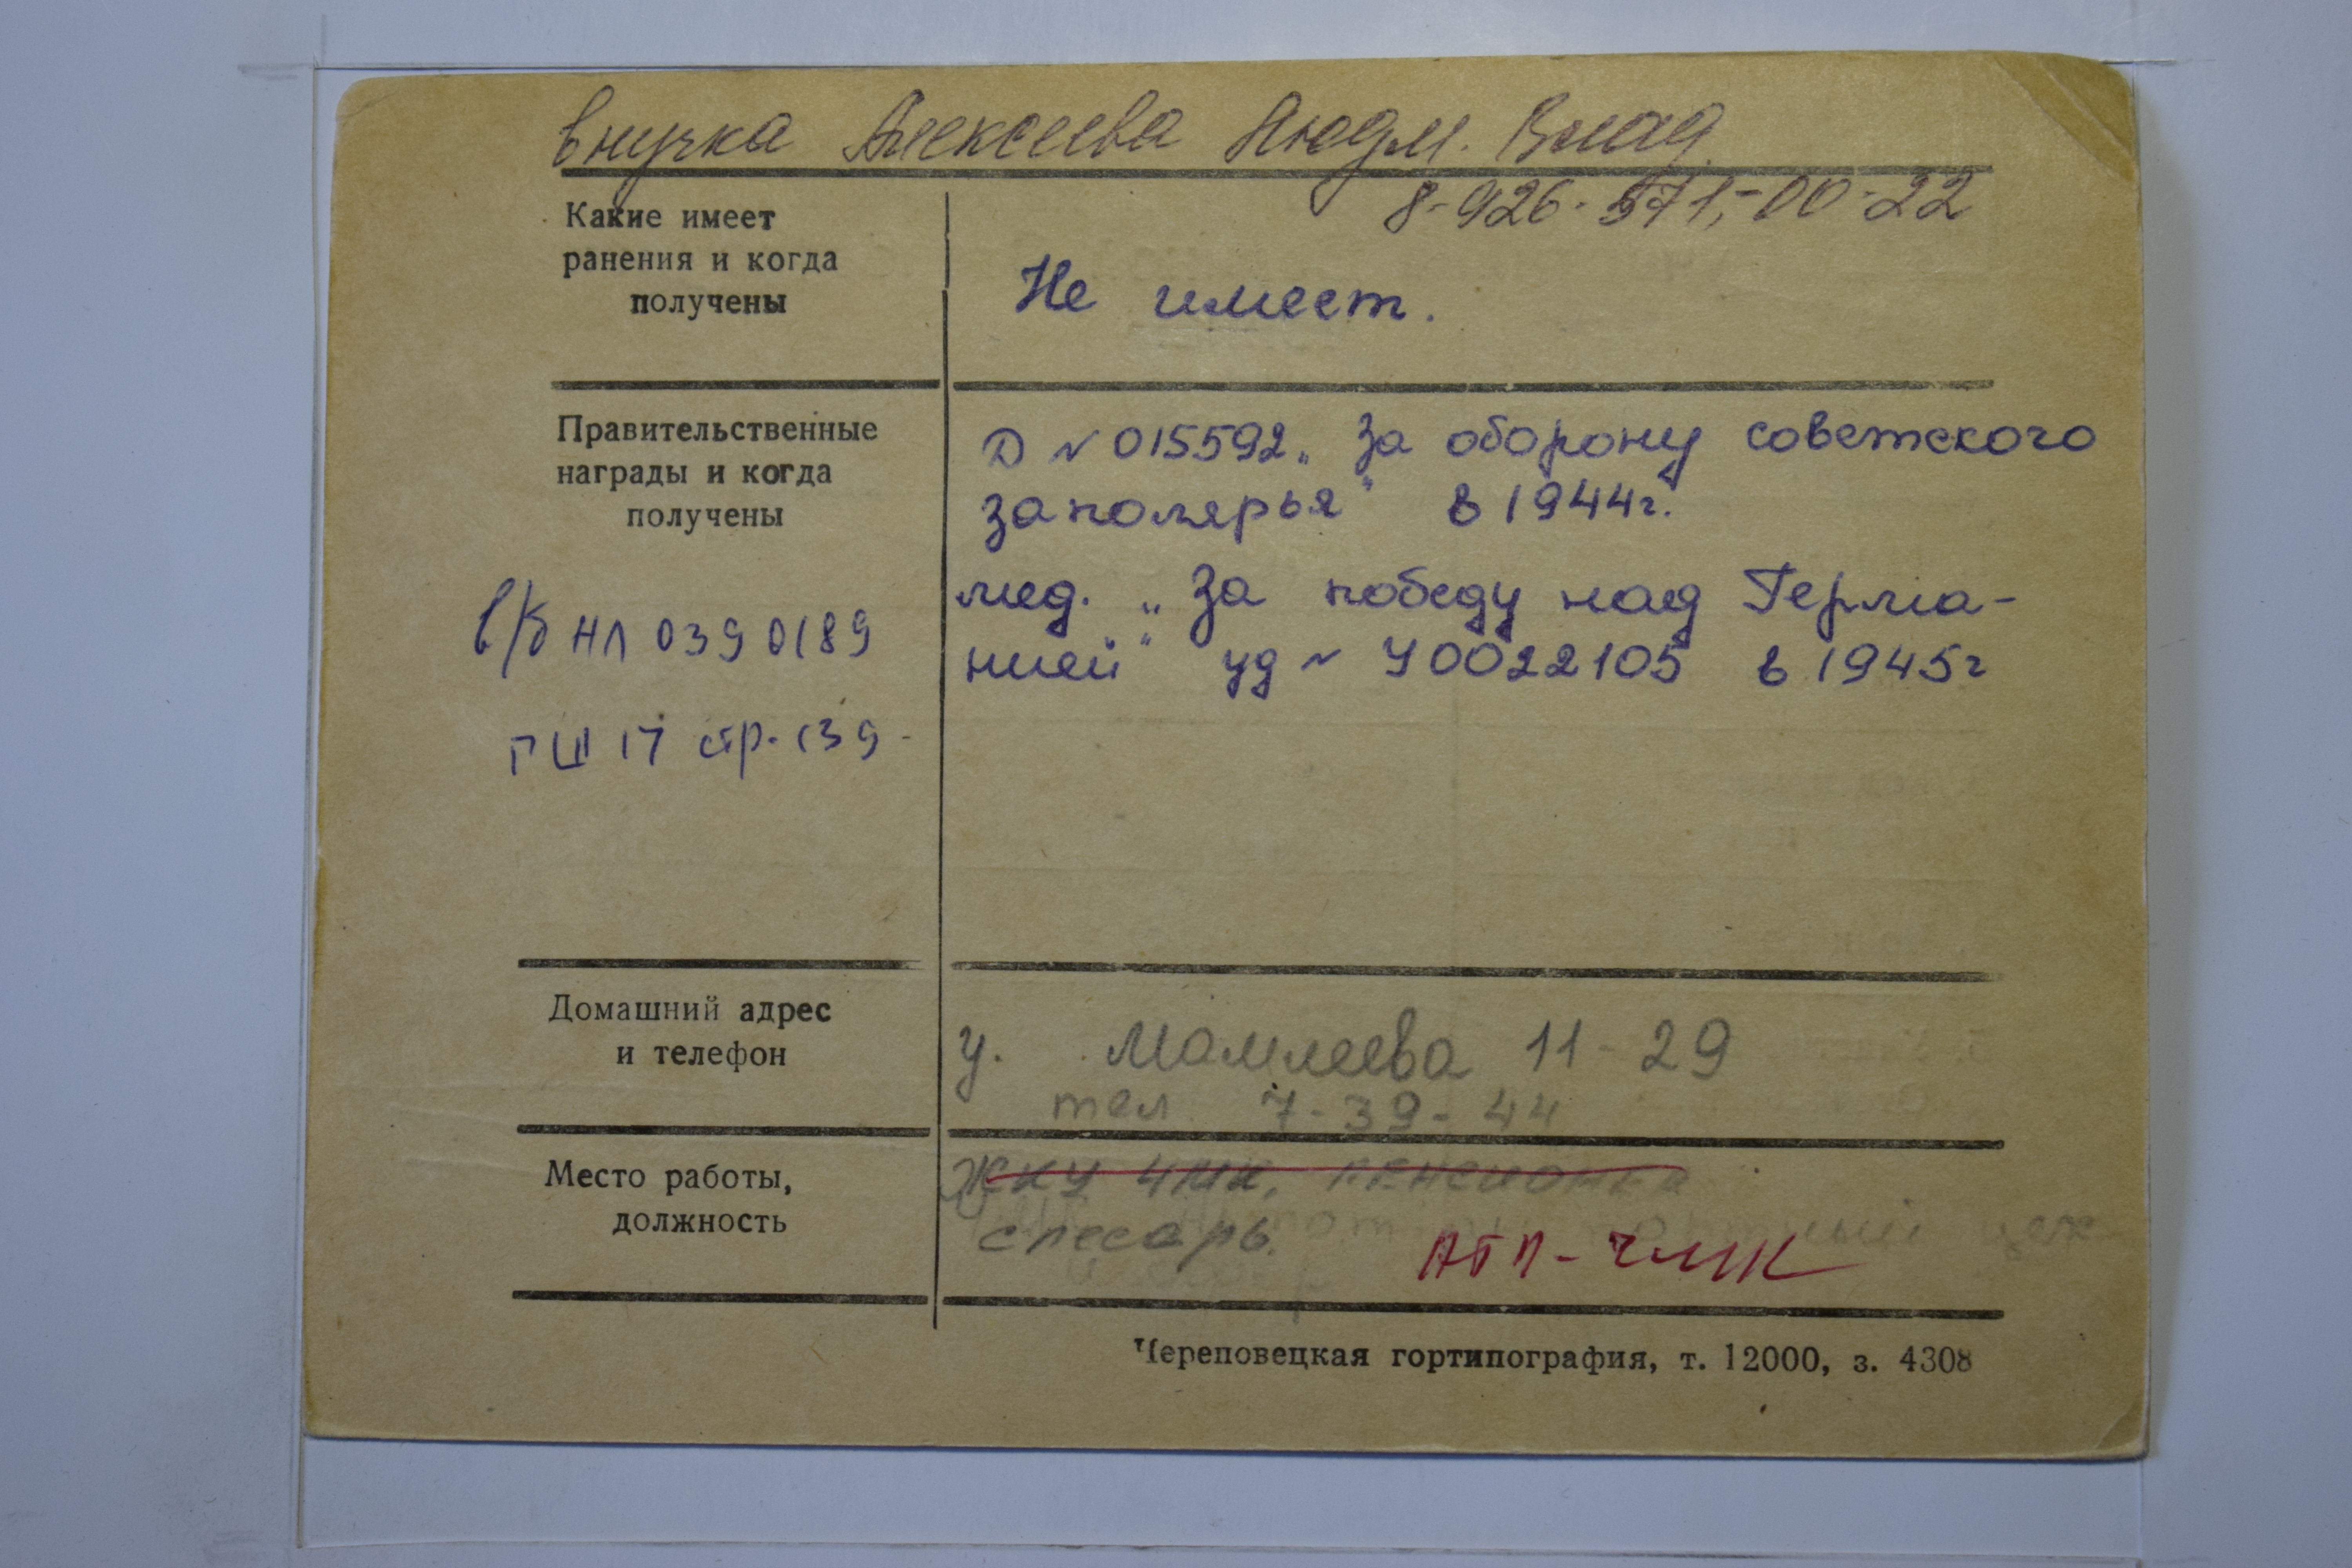 внучка Алексеева Людм. Влад.
8-926-571-00-22
Какие имеет
ранения и когда
получены
Не имеет.
Правительственные
награды и когда
получены
Д № 015592 „За оборону советского
заполярья" в 1944г.
мед. „За победу над Герма-
нией" уд № У0022105 в 1945г
в/б НЛ 0390189
ГШ 17 стр. 139
Домашний адрес
и телефон
у. Мамлеева 11-29
тел 7-39-44
Место работы,
должность
ЖКУ ЧМК,
слесарь
АТП-ЧМК
Череповецкая гортипография, т. 12000, з. 4308